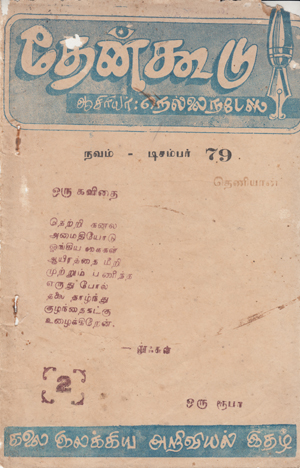 தேன்கூடு
ஆசிரியர்: நெல்லை நடேஸ்
நவம் - டிசம்பர் 79
தெணியான்
ஒரு கவிதை
நெற்றி கனல
அமைதியோடு
ஓங்கிய கைகள்
ஆயிரத்தை மீறி
முற்றும் பணிந்த
எருது போல்
தலை தாழ்ந்து
குழந்தைகட்கு
உழைக்கிறேன்.
2
ஒரு ரூபா
கலை இலக்கிய அறிவியல் இதழ்